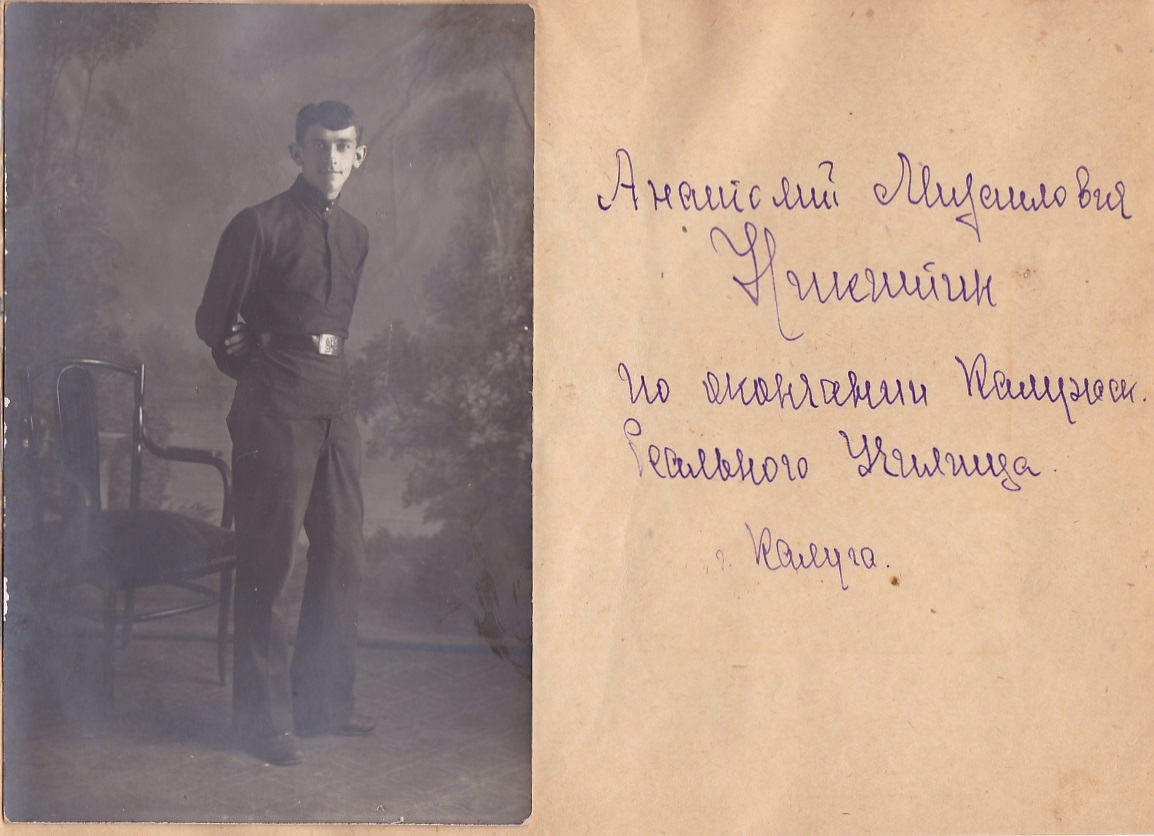 Анатолий Михайлович
Никитин
по окончании Калужск.
Реального Училища.
г. Калуга.